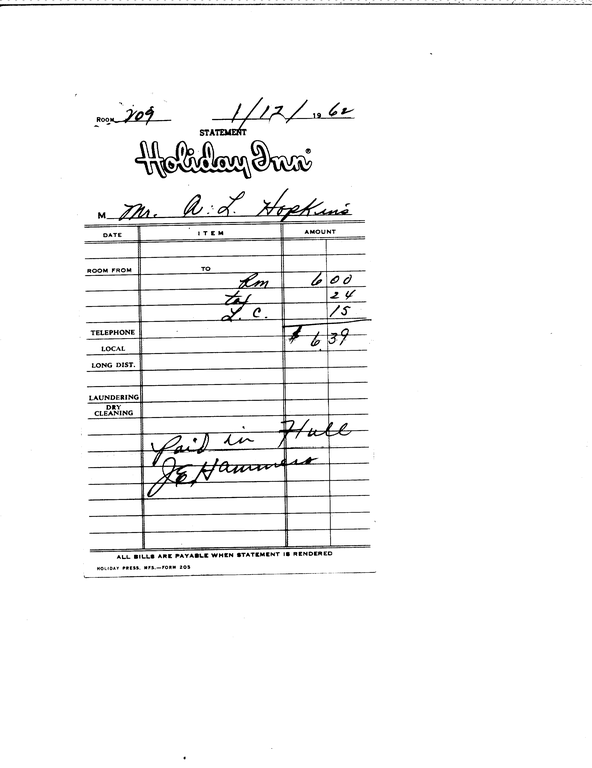 ROOM 209 1/12/ 1962
STATEMENT
Holiday Inn®
M Mr. A. L. Hopkins
DATE ITEM AMOUNT
ROOM FROM TO
Rm 6 00
tax 24
L. C. 15
TELEPHONE $ 6 39
LOCAL
LONG DIST.
LAUNDERING
DRY
CLEANING
Paid in Full
JE Hammers
ALL BILLS ARE PAYABLE WHEN STATEMENT IS RENDERED
HOLIDAY PRESS, MFS.—FORM 205